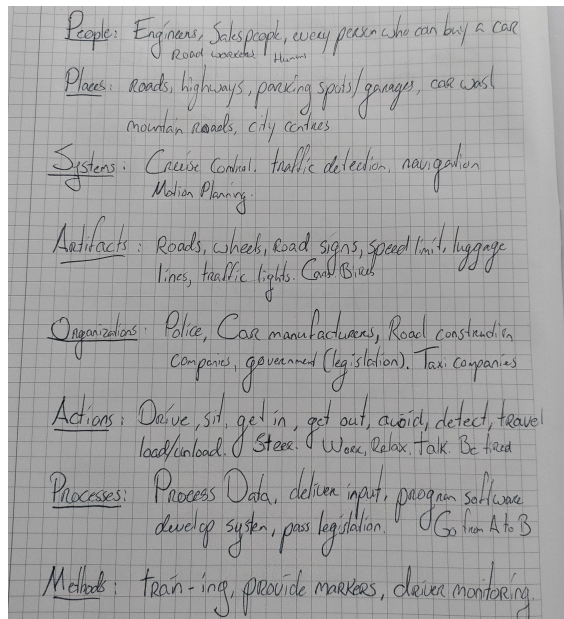 People: Engineers, Salespeople, every person who can buy a car
Road workers Human
Places: Roads, highways, parking spots/garages, car wash
mountain roads, city centres
Systems: Cruise Control, traffic detection, navigation
Motion Planning.
Artifacts: Roads, wheels, Road signs, speed limit, luggage
lines, traffic lights.
Organizations: Police, Car manufacturers, Road construction
companies, government (legislation). Taxi companies
Actions: Drive, sit, get in, get out, avoid, detect, travel
load/unload. Steer. Work, Relax, Talk. Be tired
Processes: Process Data, deliver input, program software
develop system, pass legislation. Go from A to B
Methods: tran-ing, PROVIDE MARKERS, driver monitoring.